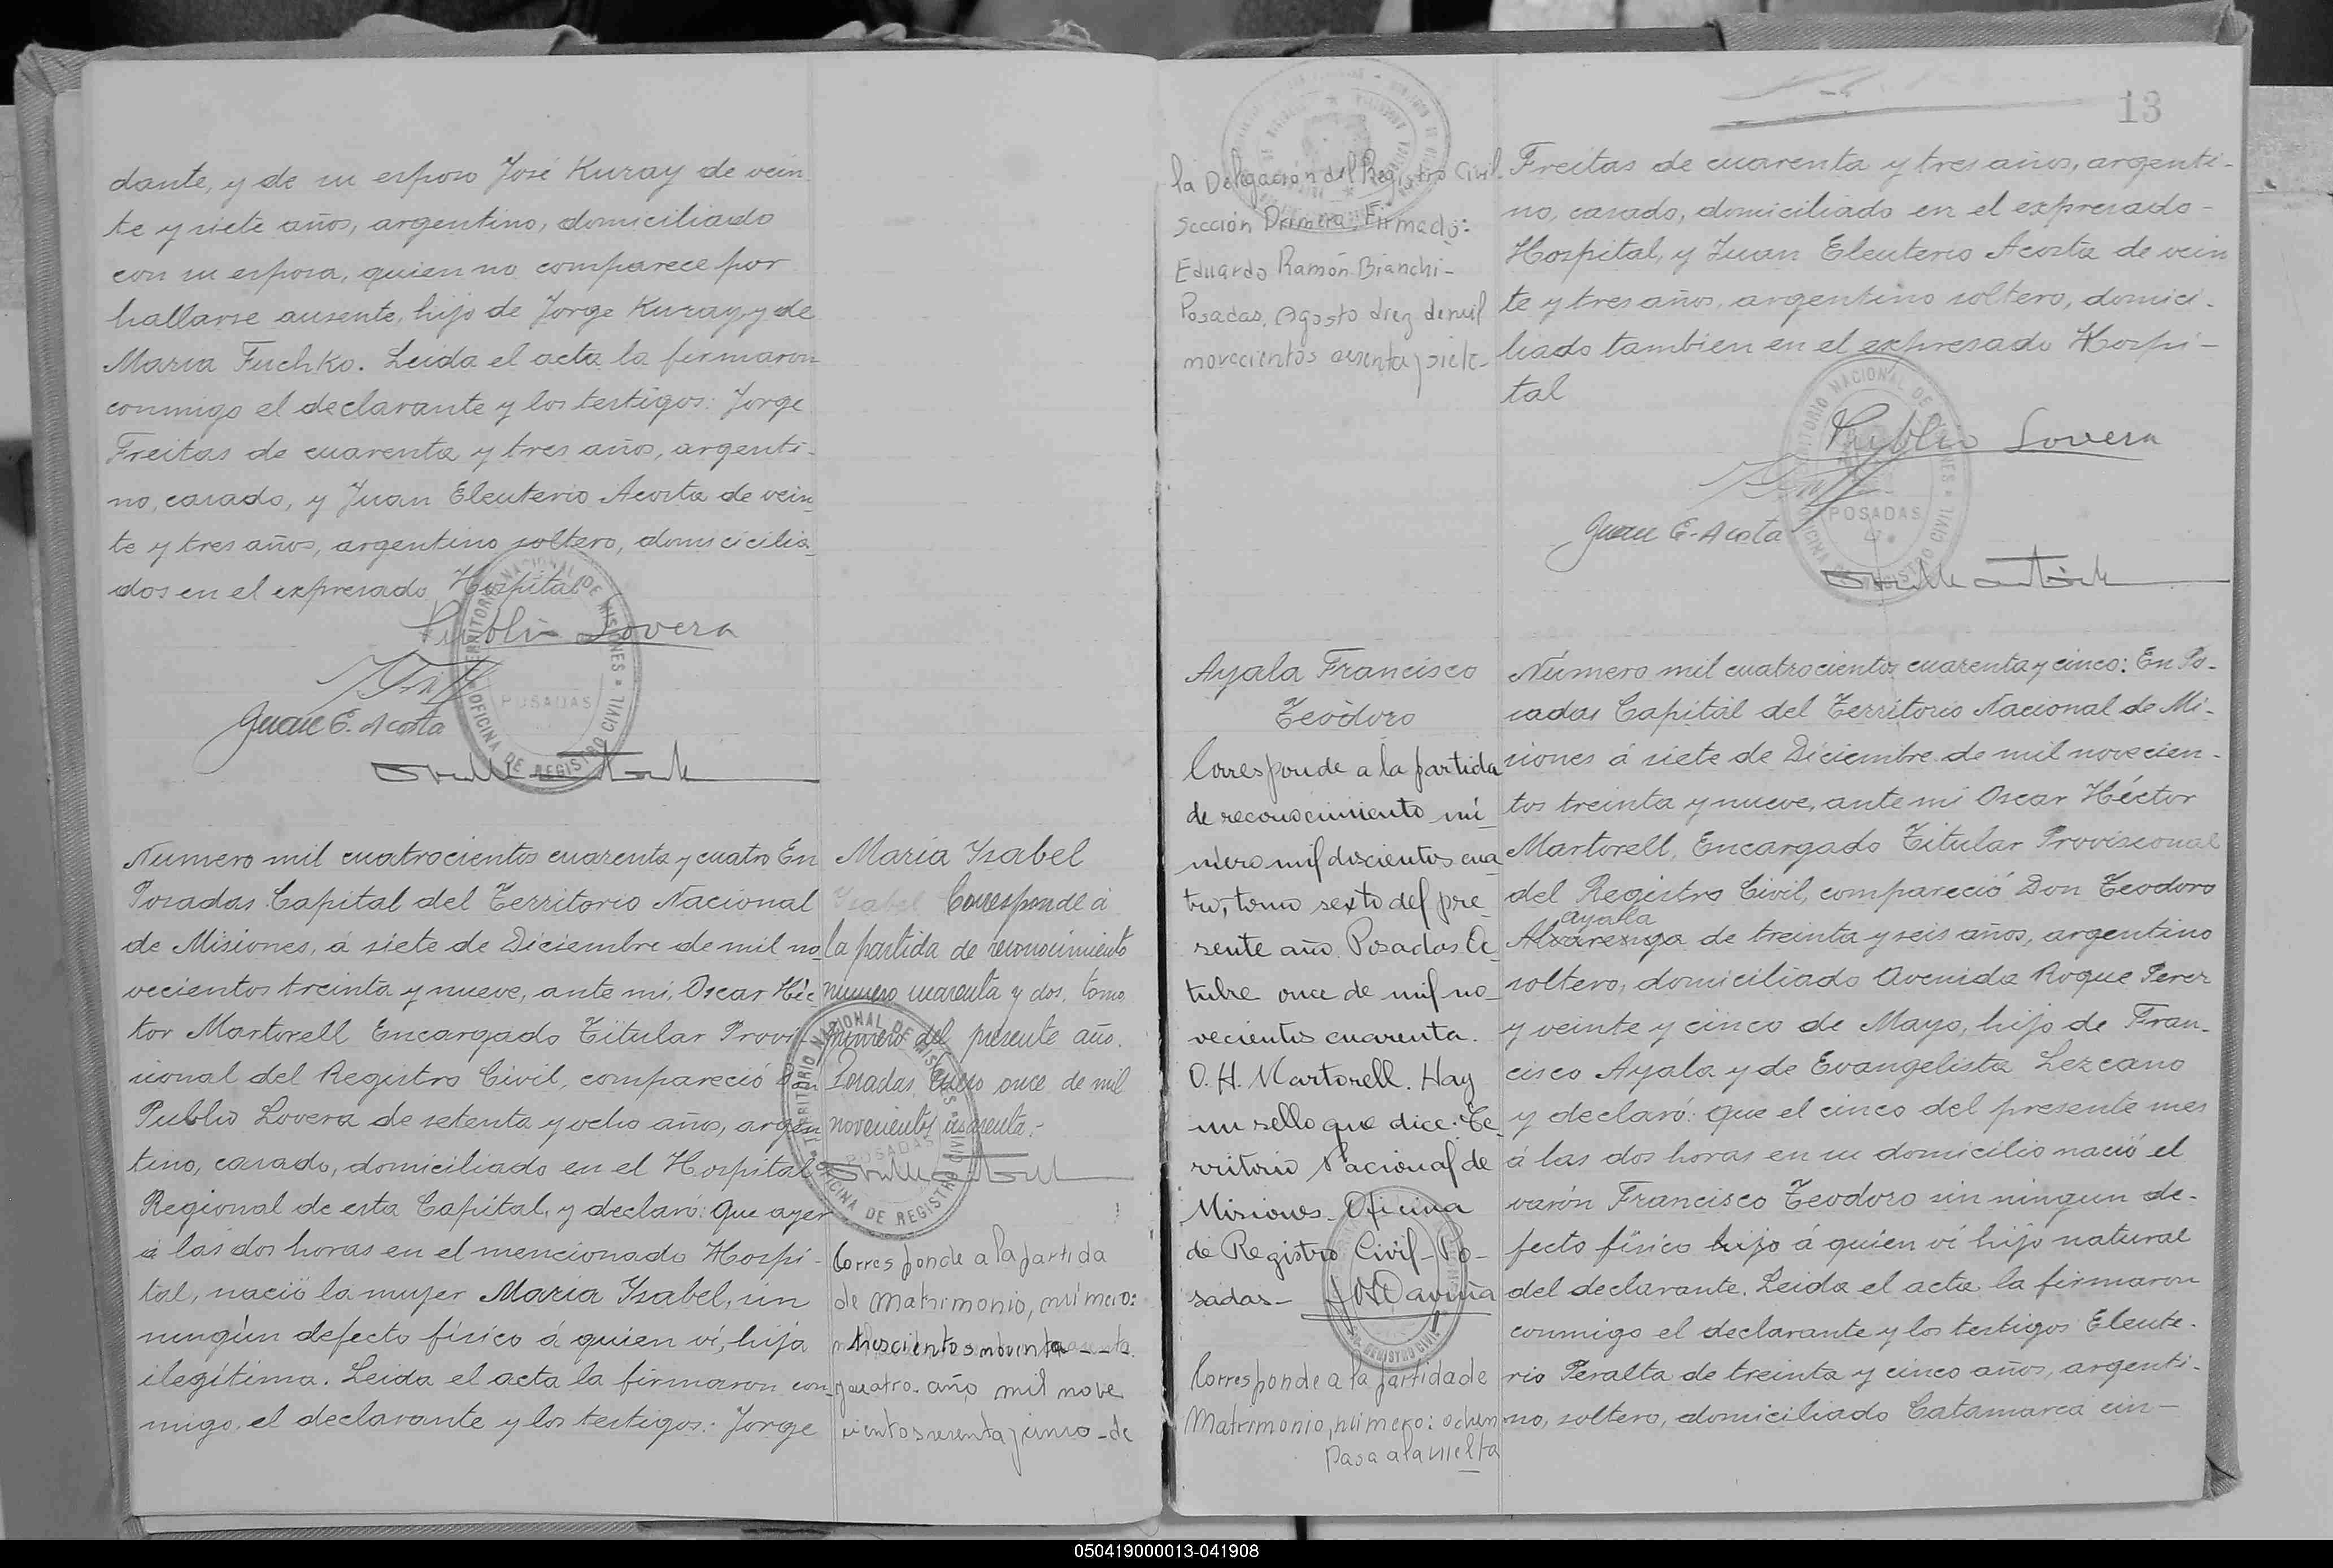 dante, y de su esposo José Kuray de vein
te y siete años, argentino, domiciliado
con su esposa, quien no comparece por
hallarse ausente, hijo de Jorge Kuray, y de
Maria Fuchko. Leida el acta la firmaron
conmigo el declarante y los testigos: Jorge
Freitas de cuarenta y tres años, argenti-
no, casado, y Juan Eleuterio Acosta de vein
te y tres años, argentino soltero, domicicilia-
dos en el expresado Hospital
Publio Lovera
Juan E. Acosta
TERRITORIO NACIONAL DE MISIONES
POSADAS
OFICINA DE REGISTRO CIVIL
Número mil cuatrocientos cuarenta y cuatro En
Posadas Capital del Territorio Nacional
de Misiones, á siete de Diciembre de mil no-
vecientos treinta y nueve, ante mi, Oscar Héc
tor Martorell Encargado Titular Provi-
sional del Registro Civil, compareció Don
Publio Lovera de setenta y ocho años, argen
tino, casado, domiciliado en el Hospital
Regional de esta Capital, y declaró: Que ayer
á las dos horas en el mencionado Hospi-
tal, nació la mujer Maria Ysabel, sin
ningún defecto físico á quien ví, hija
ilegítima. Leida el acta la firmaron con-
migo el declarante y los testigos: Jorge
Maria Ysabel
Ysabel Corresponde á
la partida de reconocimiento
número cuarenta y dos, tomo
primero del presente año.
Posadas, Enero once de mil
novecientos cuarenta.-
TERRITORIO NACIONAL DE MISIONES
POSADAS
OFICINA DE REGISTRO CIVIL
Corresponde a la partida
de Matrimonio, número:
trescientos noventa
y cuatro. año mil nove
cientos sesenta y cinco - de
la Delegación del Registro Civil.
Sección Primera, Firmado:
Eduardo Ramón Bianchi-
Posadas, Agosto diez de mil
novecientos sesenta y siete-
13
Freitas de cuarenta y tres años, argenti-
no, casado, domiciliado en el expresado-
Hospital, y Juan Eleuterio Acosta de vein
te y tres años, argentino soltero, domici-
liado tambien en el expresado Hospi-
tal
Publio Lovera
Juan E. Acosta
TERRITORIO NACIONAL DE MISIONES
POSADAS
OFICINA DE REGISTRO CIVIL
Ayala Francisco
Teodoro
Corresponde a la partida
de reconocimiento nú-
mero mil doscientos cua
tro, tomo sexto del pre-
sente año. Posadas Oc
tubre once de mil no-
vecientos cuarenta.
O. H. Martorell. Hay
un sello que dice: Te-
rritorio Nacional de
Misiones - Oficina
de Registro Civil - Po-
sadas-
Corresponde a la partida de
Matrimonio, número: ochen
Pasa a la vuelta
Número mil cuatrocientos cuarenta y cinco: En Po-
sadas Capital del Territorio Nacional de Mi-
siones á siete de Diciembre de mil novecien-
tos treinta y nueve, ante mi Oscar Héctor
Martorell, Encargado Titular Provisional
del Registro Civil, compareció Don Teodoro
ayala
Alvarenga de treinta y seis años, argentino
soltero, domiciliado Avenida Roque Perez
y veinte y cinco de Mayo, hijo de Fran-
cisco Ayala y de Evangelista Lezcano
y declaró: que el cinco del presente mes
á las dos horas en su domicilio nació el
varón Francisco Teodoro sin ningun de-
fecto físico hijo á quien ví hijo natural
del declarante. Leida el acta la firmaron
conmigo el declarante y los testigos Eleute-
rio Peralta de treinta y cinco años, argenti-
no, soltero, domiciliado Catamarca cin-
050419000013-041908